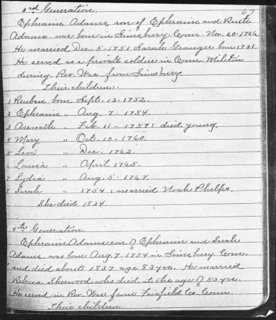 67
3rd Generation.
Ephraim Adams, son of Ephraim and Ruth
Adams. was born in Simsbury Conn Nov. 20. 1726
He married Dec. 5-1751 Sarah Granger born 1731.
He served as a private soldier in Conn. Militia
during Rev. War from Simsbury
Their children:
1 Reuben born Sept. 13-1752.
2 Ephraim " Aug. 7-1754.
3 " Feb. 11-1757: died young.
4 Mary " Oct. 10-1760.
5 Levi " Dec. 1762.
6 " April 1765.
7 Lydia " Aug. 5-1767.
8 Sarah " married Noah Phelps.
She died 1834.
4th Generation.
Ephraim Adams, son of Ephraim and Sarah
Adams was born Aug. 7-1754 in Simsbury Conn.
and died about 1837 age 83 yrs. He married
Rebecca Sherwood who died at the age of yrs.
He served in Rev. War from Fairfield Co. Conn.
Their children.